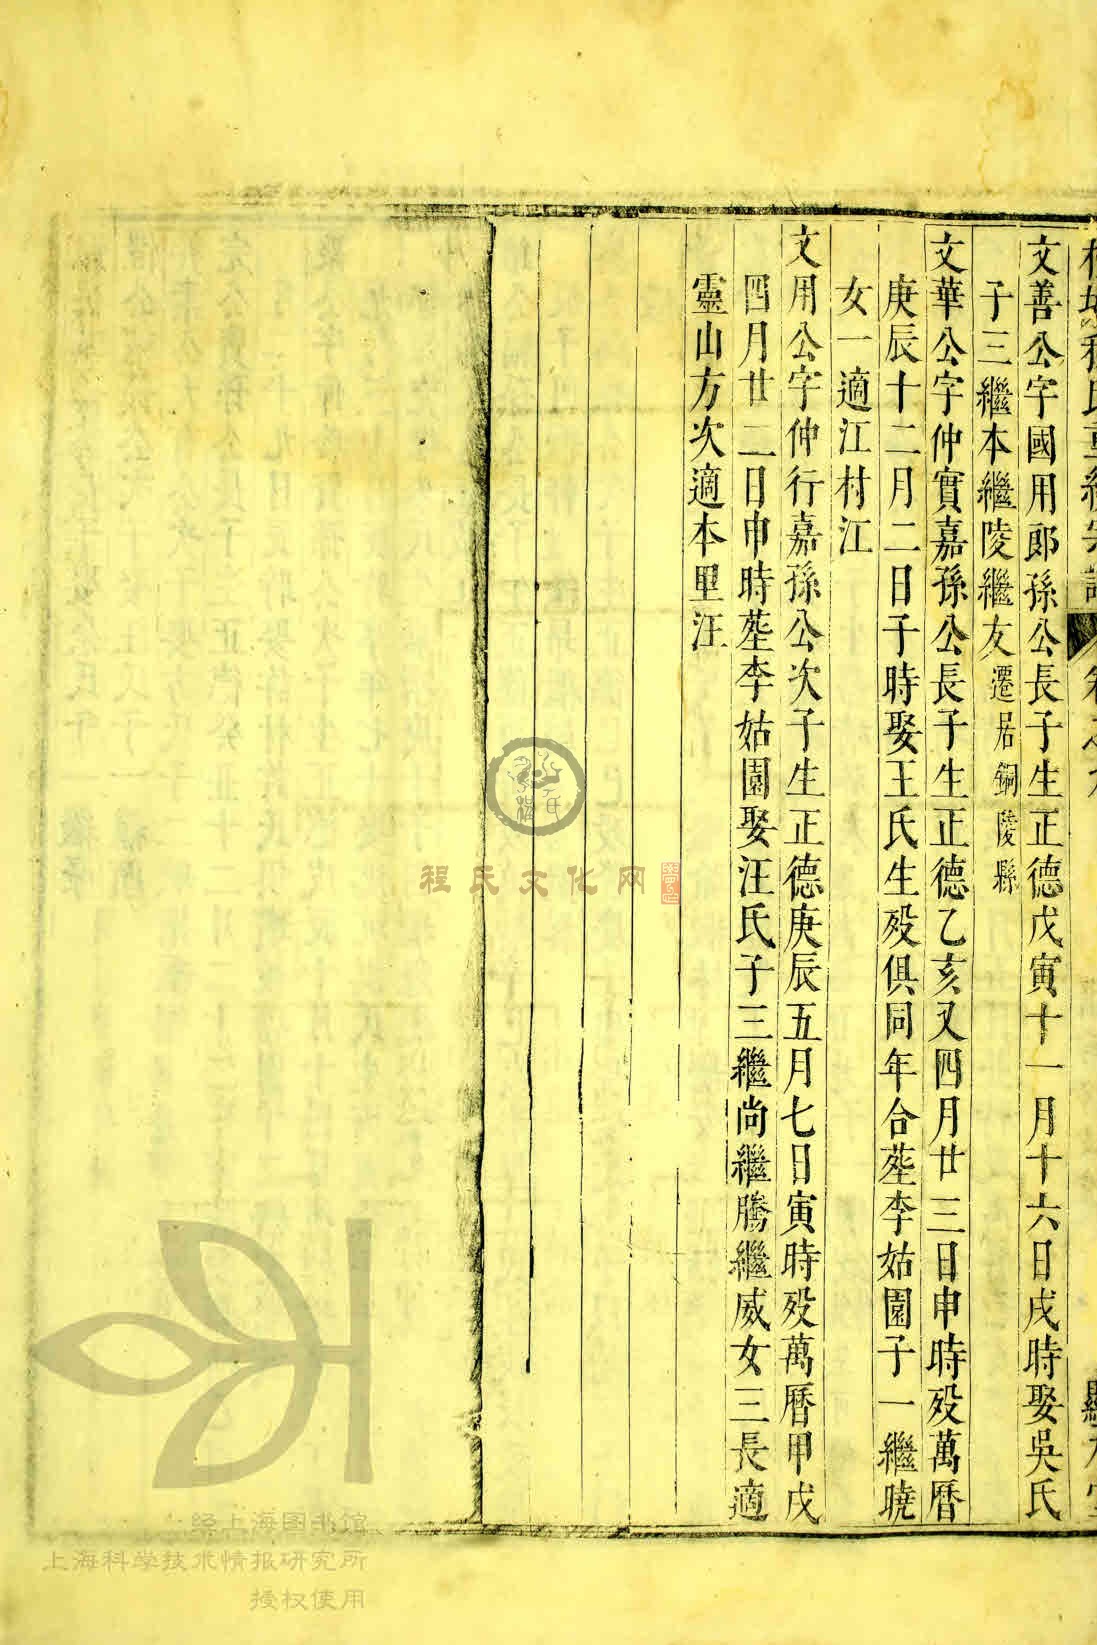 文善公字國用郎孫公長子生正德戊寅十一月十六日戌時娶吳氏
子三繼本繼陵繼友遷居銅陵縣
文華公字仲實嘉孫公長子生正德乙亥又四月廿三日申時歿萬曆
庚辰十二月二日子時娶王氏生歿俱同年合塟李姑園子一繼曉
女一適江村江
文用公字仲行嘉孫公次子生正德庚辰五月七日寅時歿萬曆甲戌
四月廿二日申時塟李姑園娶汪氏子三繼尚繼騰繼威女三長適
靈山方次適本里汪
程氏
程氏文化网
经上海图书馆
上海科学技术情报研究所
授权使用